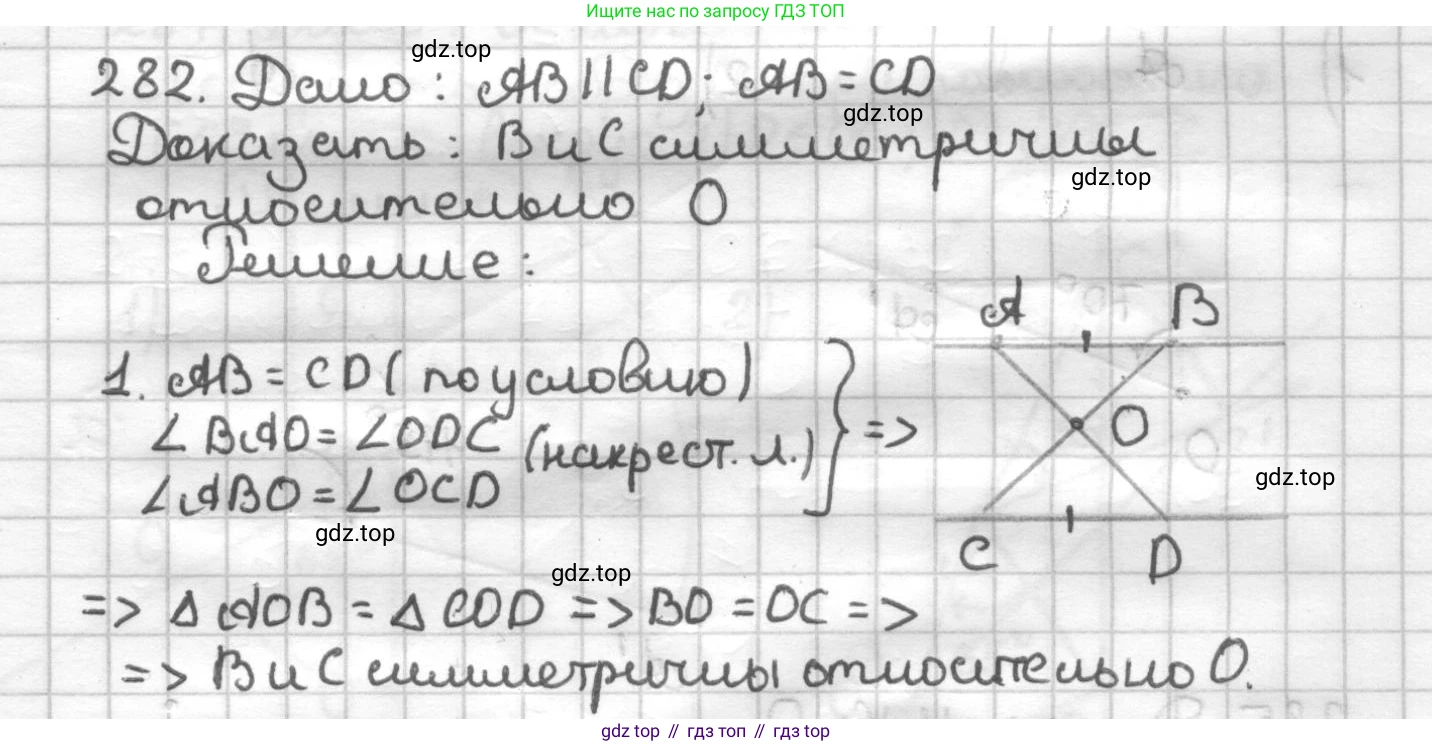 Ищите нас по запросу ГДЗ ТОП
gdz.top
282. Дано: AB || CD; AB = CD
gdz.top
Доказать: B и C симметричны
gdz.top
относительно O
Решение:
A B
1. AB = CD (по условию)
∠BAO = ∠ODC (накрест. л.) } =>
O
∠ABO = ∠OCD
gdz.top
gdz.top
C D
gdz.top
=> △AOB = △COD => BO = OC =>
=> B и C симметричны относительно O.
gdz top // гдз топ // gdz top